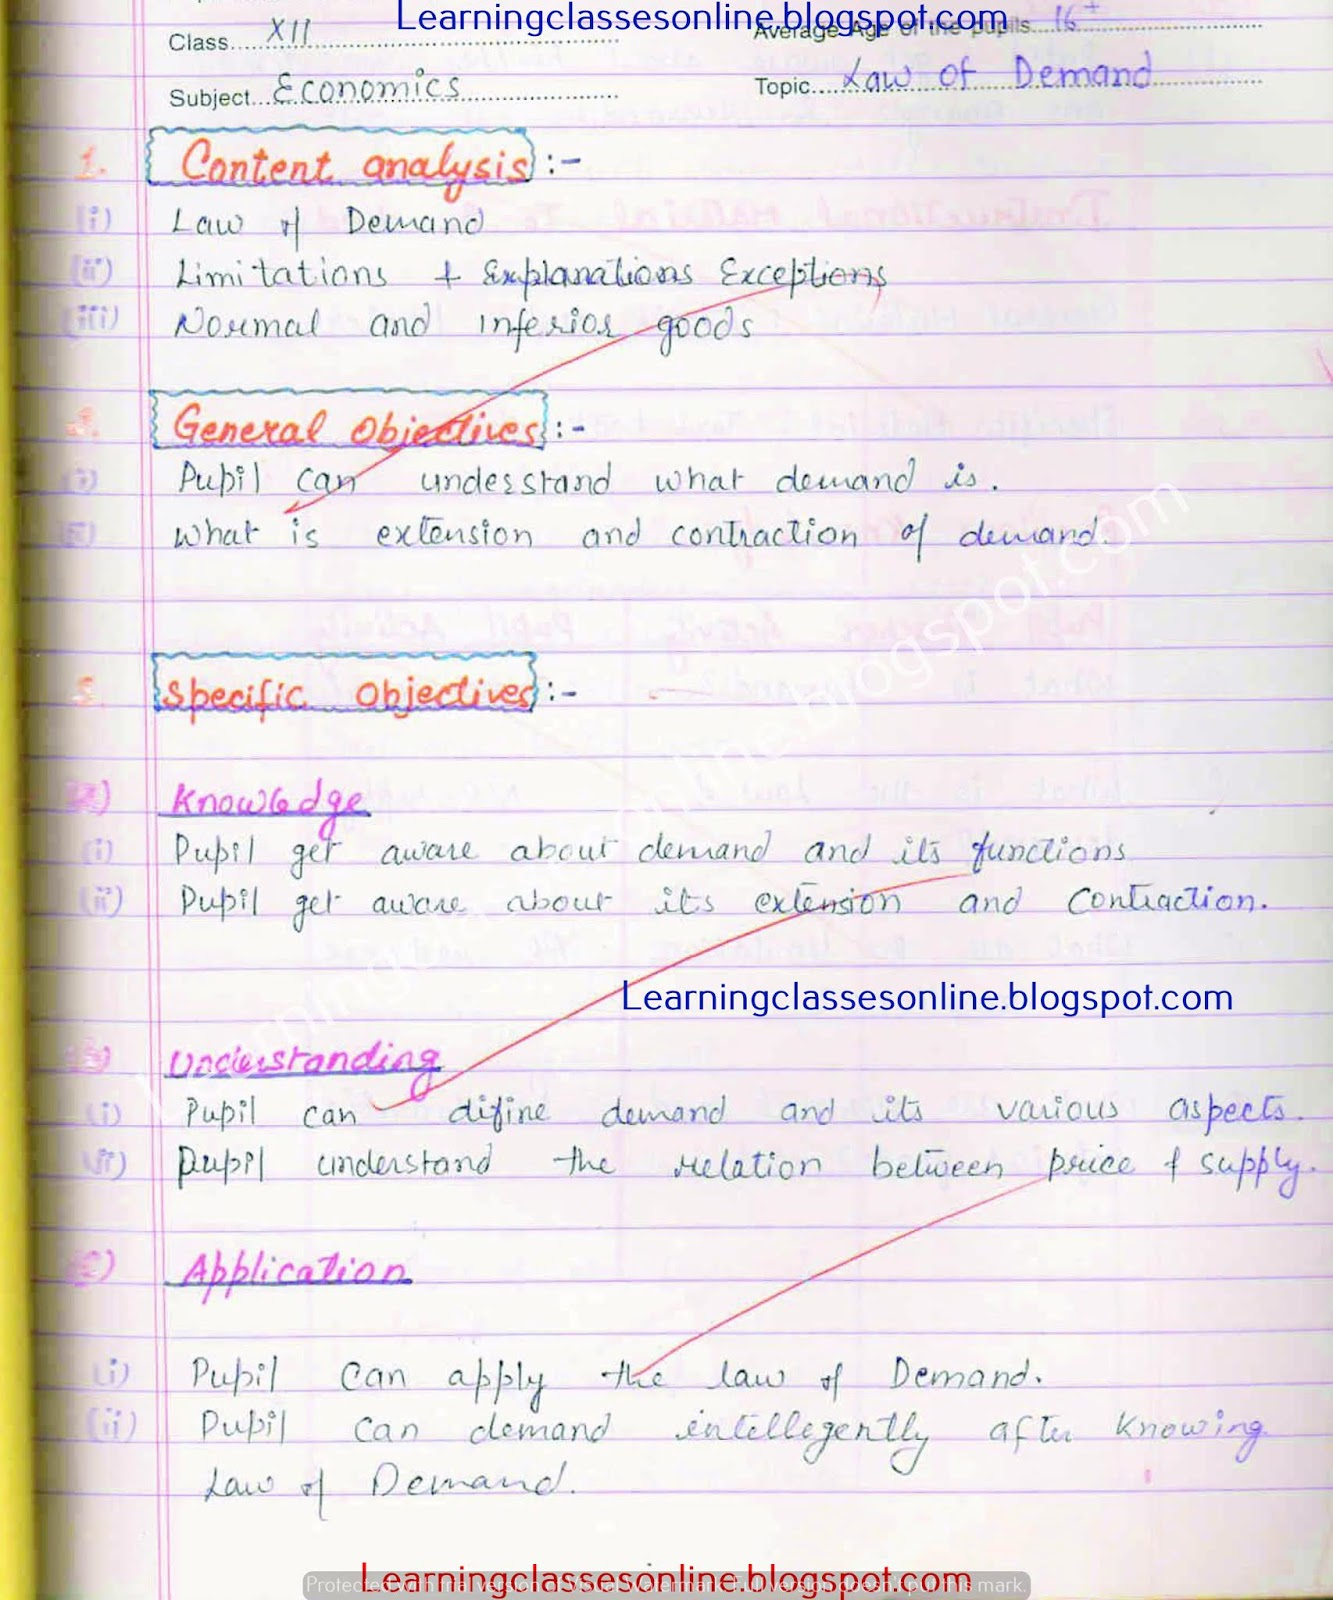 Learningclassesonline.blogspot.com
Class XII
Average Age of the pupils 16+
Subject Economics
Topic Law of Demand
1. Content analysis :-
(i) Law of Demand
(ii) Limitations + Explanations Exceptions
(iii) Normal and inferior goods
2. General Objectives :-
(i) Pupil can understand what demand is.
(ii) What is extension and contraction of demand.
3. Specific Objectives :-
A) Knowledge
(i) Pupil get aware about demand and its functions
(ii) Pupil get aware about its extension and Contraction.
Learningclassesonline.blogspot.com
B) Understanding
(i) Pupil can difine demand and its various aspects.
(ii) Pupil understand the relation between price & supply.
C) Application
(i) Pupil can apply the law of Demand.
(ii) Pupil can demand intellegently after knowing
Law of Demand.
Learningclassesonline.blogspot.com
Protected with trial version of Visual Watermark. Full version doesn't put this mark.